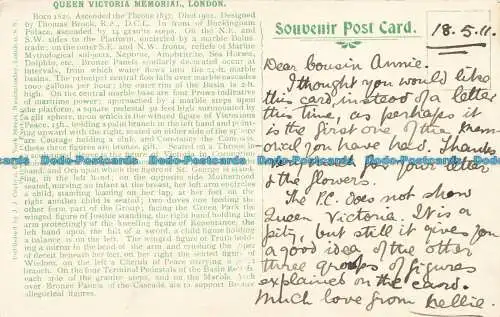 QUEEN VICTORIA MEMORIAL, LONDON.
Born 1820. Ascended the Throne 1837. Died 1901. Designed
by Thomas Brock, R.A., D.C.L. In front of Buckingham
Palace, ascended by 14 granite steps. On the N.E. and
S.W. sides to the Platform, encircled by a marble Balus-
trade; on the outer S.E. and N.W. fronts, reliefs of Marine
Mythological subjects, Neptune, Amphitrite, Sea Horses,
Dolphin, etc. Bronze Panels similarly decorated occur at
intervals, from which water flows into the 22-ft. marble
basins. The principal central flow falls over marble cascades
1000 gallons per hour; the outer rim of the Basin is 2-ft.
high. On the central marble base are four Prows indicative
of maritime power; approached by a marble steps upon
the platform, a square pedestal
a gilt sphere, upon which is the winged figure of Victorious
Peace, 13ft., holding a palm branch in the left hand and point-
ing upward with the right; seated on either side of the
are Courage holding a club, and Constancy the Compass.
these three figures are bronze, gilt. Seated on a Throne is
St. George is stand-
ing, in the left hand; on the opposite side Motherhood
seated, nursing an infant at the breast, her left arm encircles
a child, another leaning on her lap, at her feet on the
right another child is seated; two doves on
other form part of the Group; facing the Green Park the
winged figure of Justice standing, the right hand holding the
arm protectingly of the kneeling figure of Repentance, the
left hand upon the hilt of a sword, a child figure holding
a balance is on her left. The winged figure of Truth hold-
ing a mirror in the bend of the arm, and crushing the
of deceit beneath her feet, on her right the seated figure of
Wisdom, on the left a Cherub of Peace carrying a
branch. On the four Terminal Pedestals of the Basin
each side of the granite steps, and on the Marble
over Bronze Panels of the Cascade, are to support Bronze
allegorical figures.
Souvenir Post Card.
18.5.11.
Dear Cousin Annie.
I thought you would like
this card instead of a letter
this time, as perhaps it
is the first one of the Mem-
orial you have had. Thanks
very much for your letter
& the flowers.
The P.C. does not show
Queen Victoria. It is a
pity, but still it gives you
a good idea of the other
three groups of figures
explained on the card.
Much love from Nellie.
Bodo-Postcards Bodo-Postcards Bodo-Postcards Bodo-Postcards Bodo-Postcards